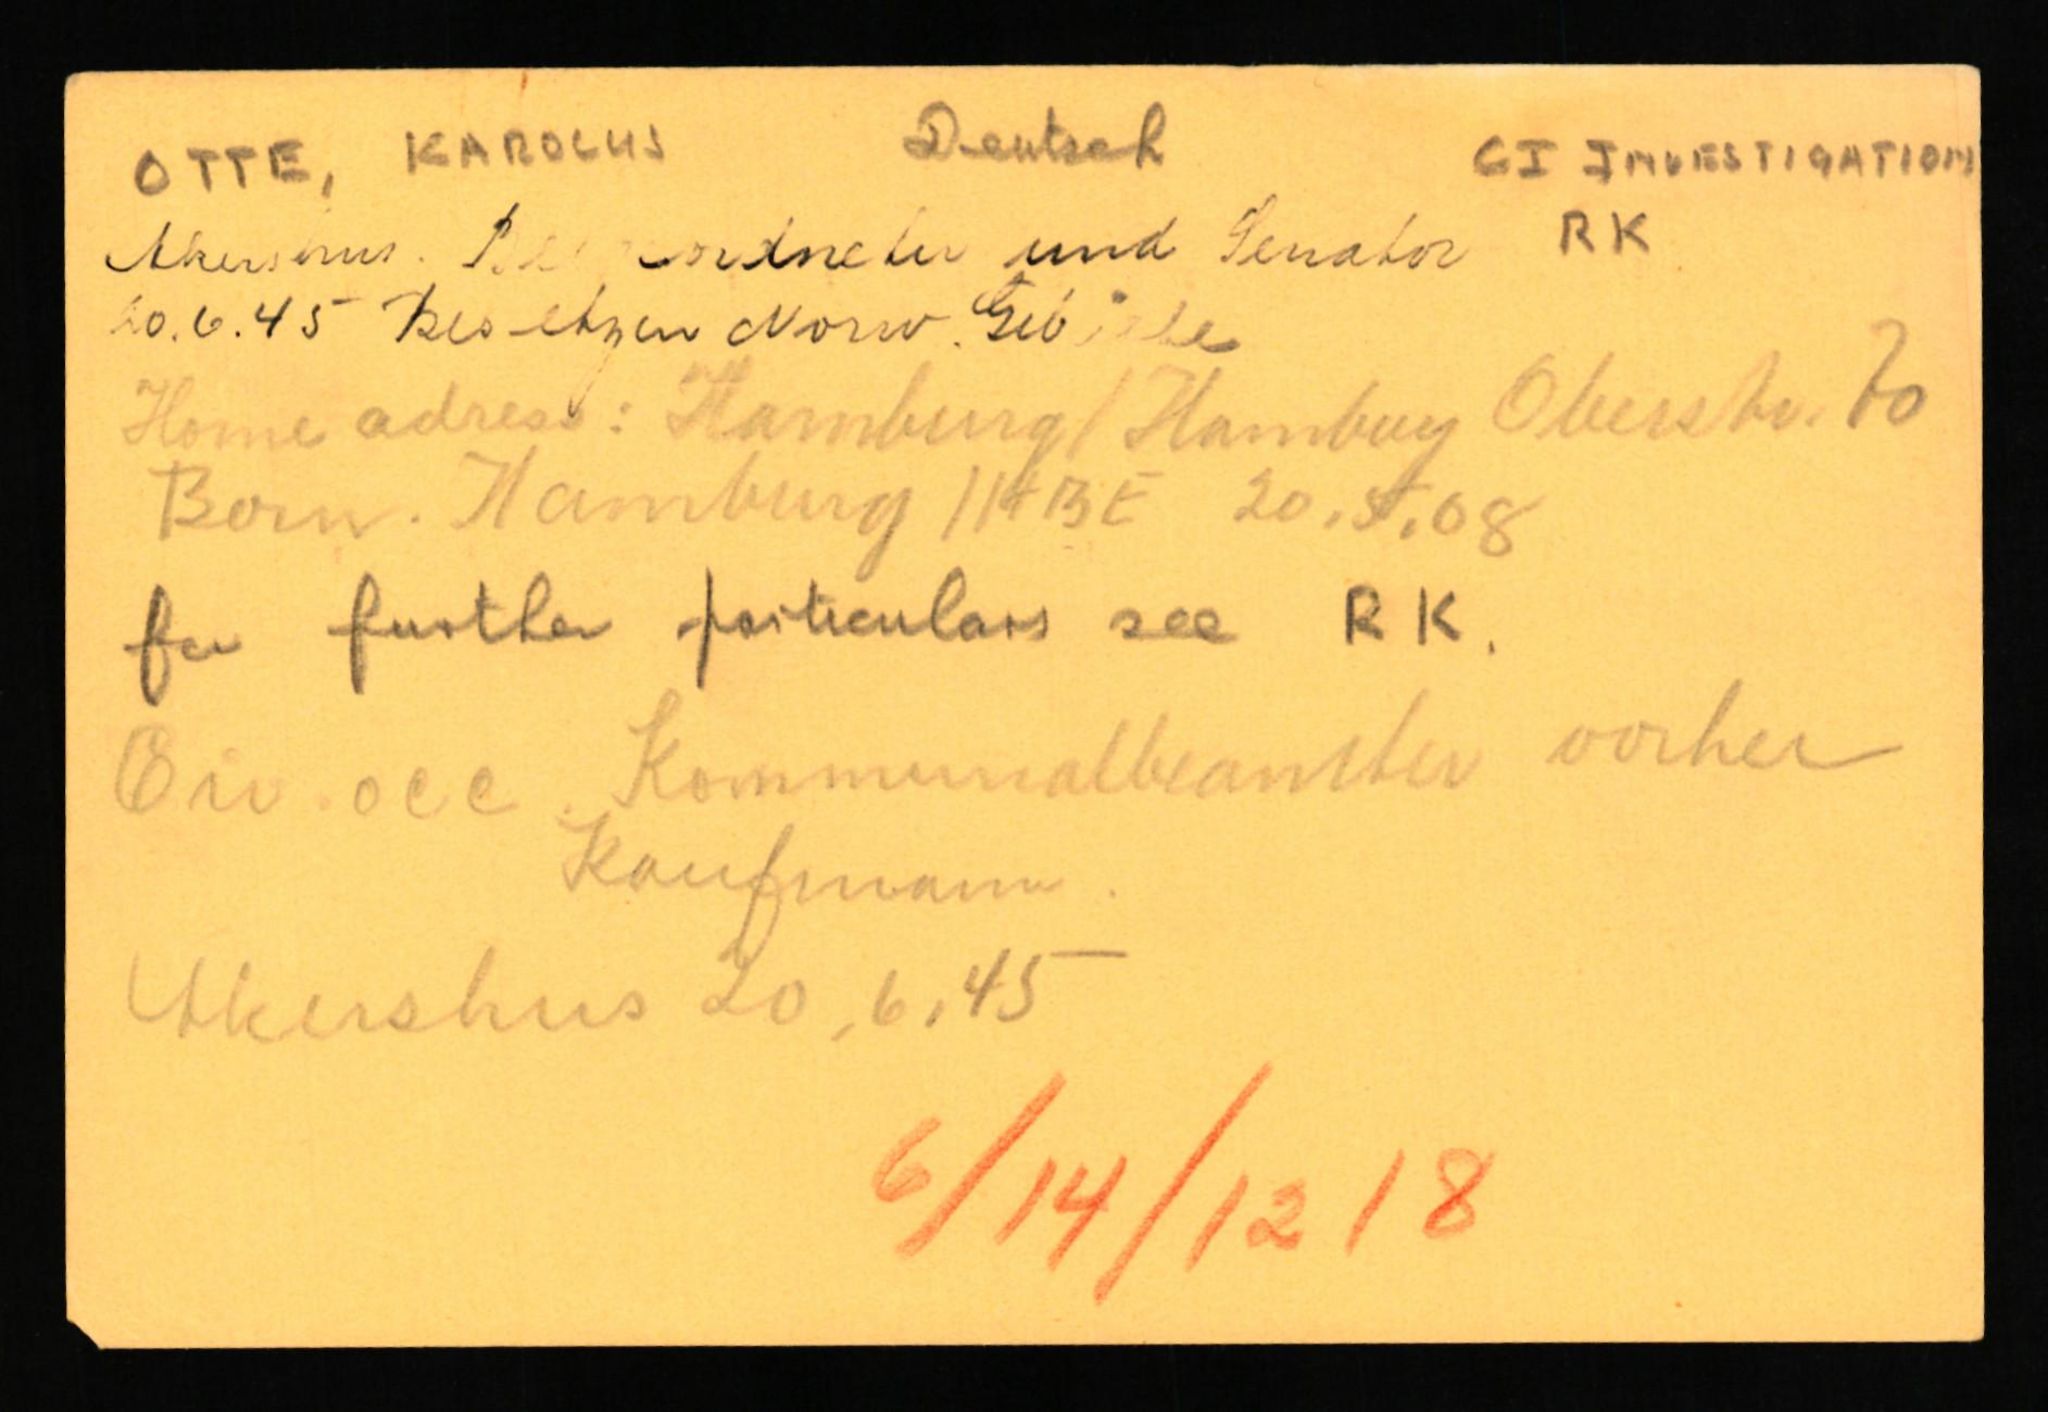 OTTE, KAROLUS Deutsch CI INVESTIGATION
Akershus. und Senator RK
20.6.45 Besetzen Norw. Gebiete
Home adress: Hamburg/Hamburg Oberstr. 70
Born. Hamburg /HBE 20.5.08
for further particulars see RK.
Civ. occ. Kommunalbeamter vorher
Kaufmann.
Akershus 20,6,45
6/14/12 18